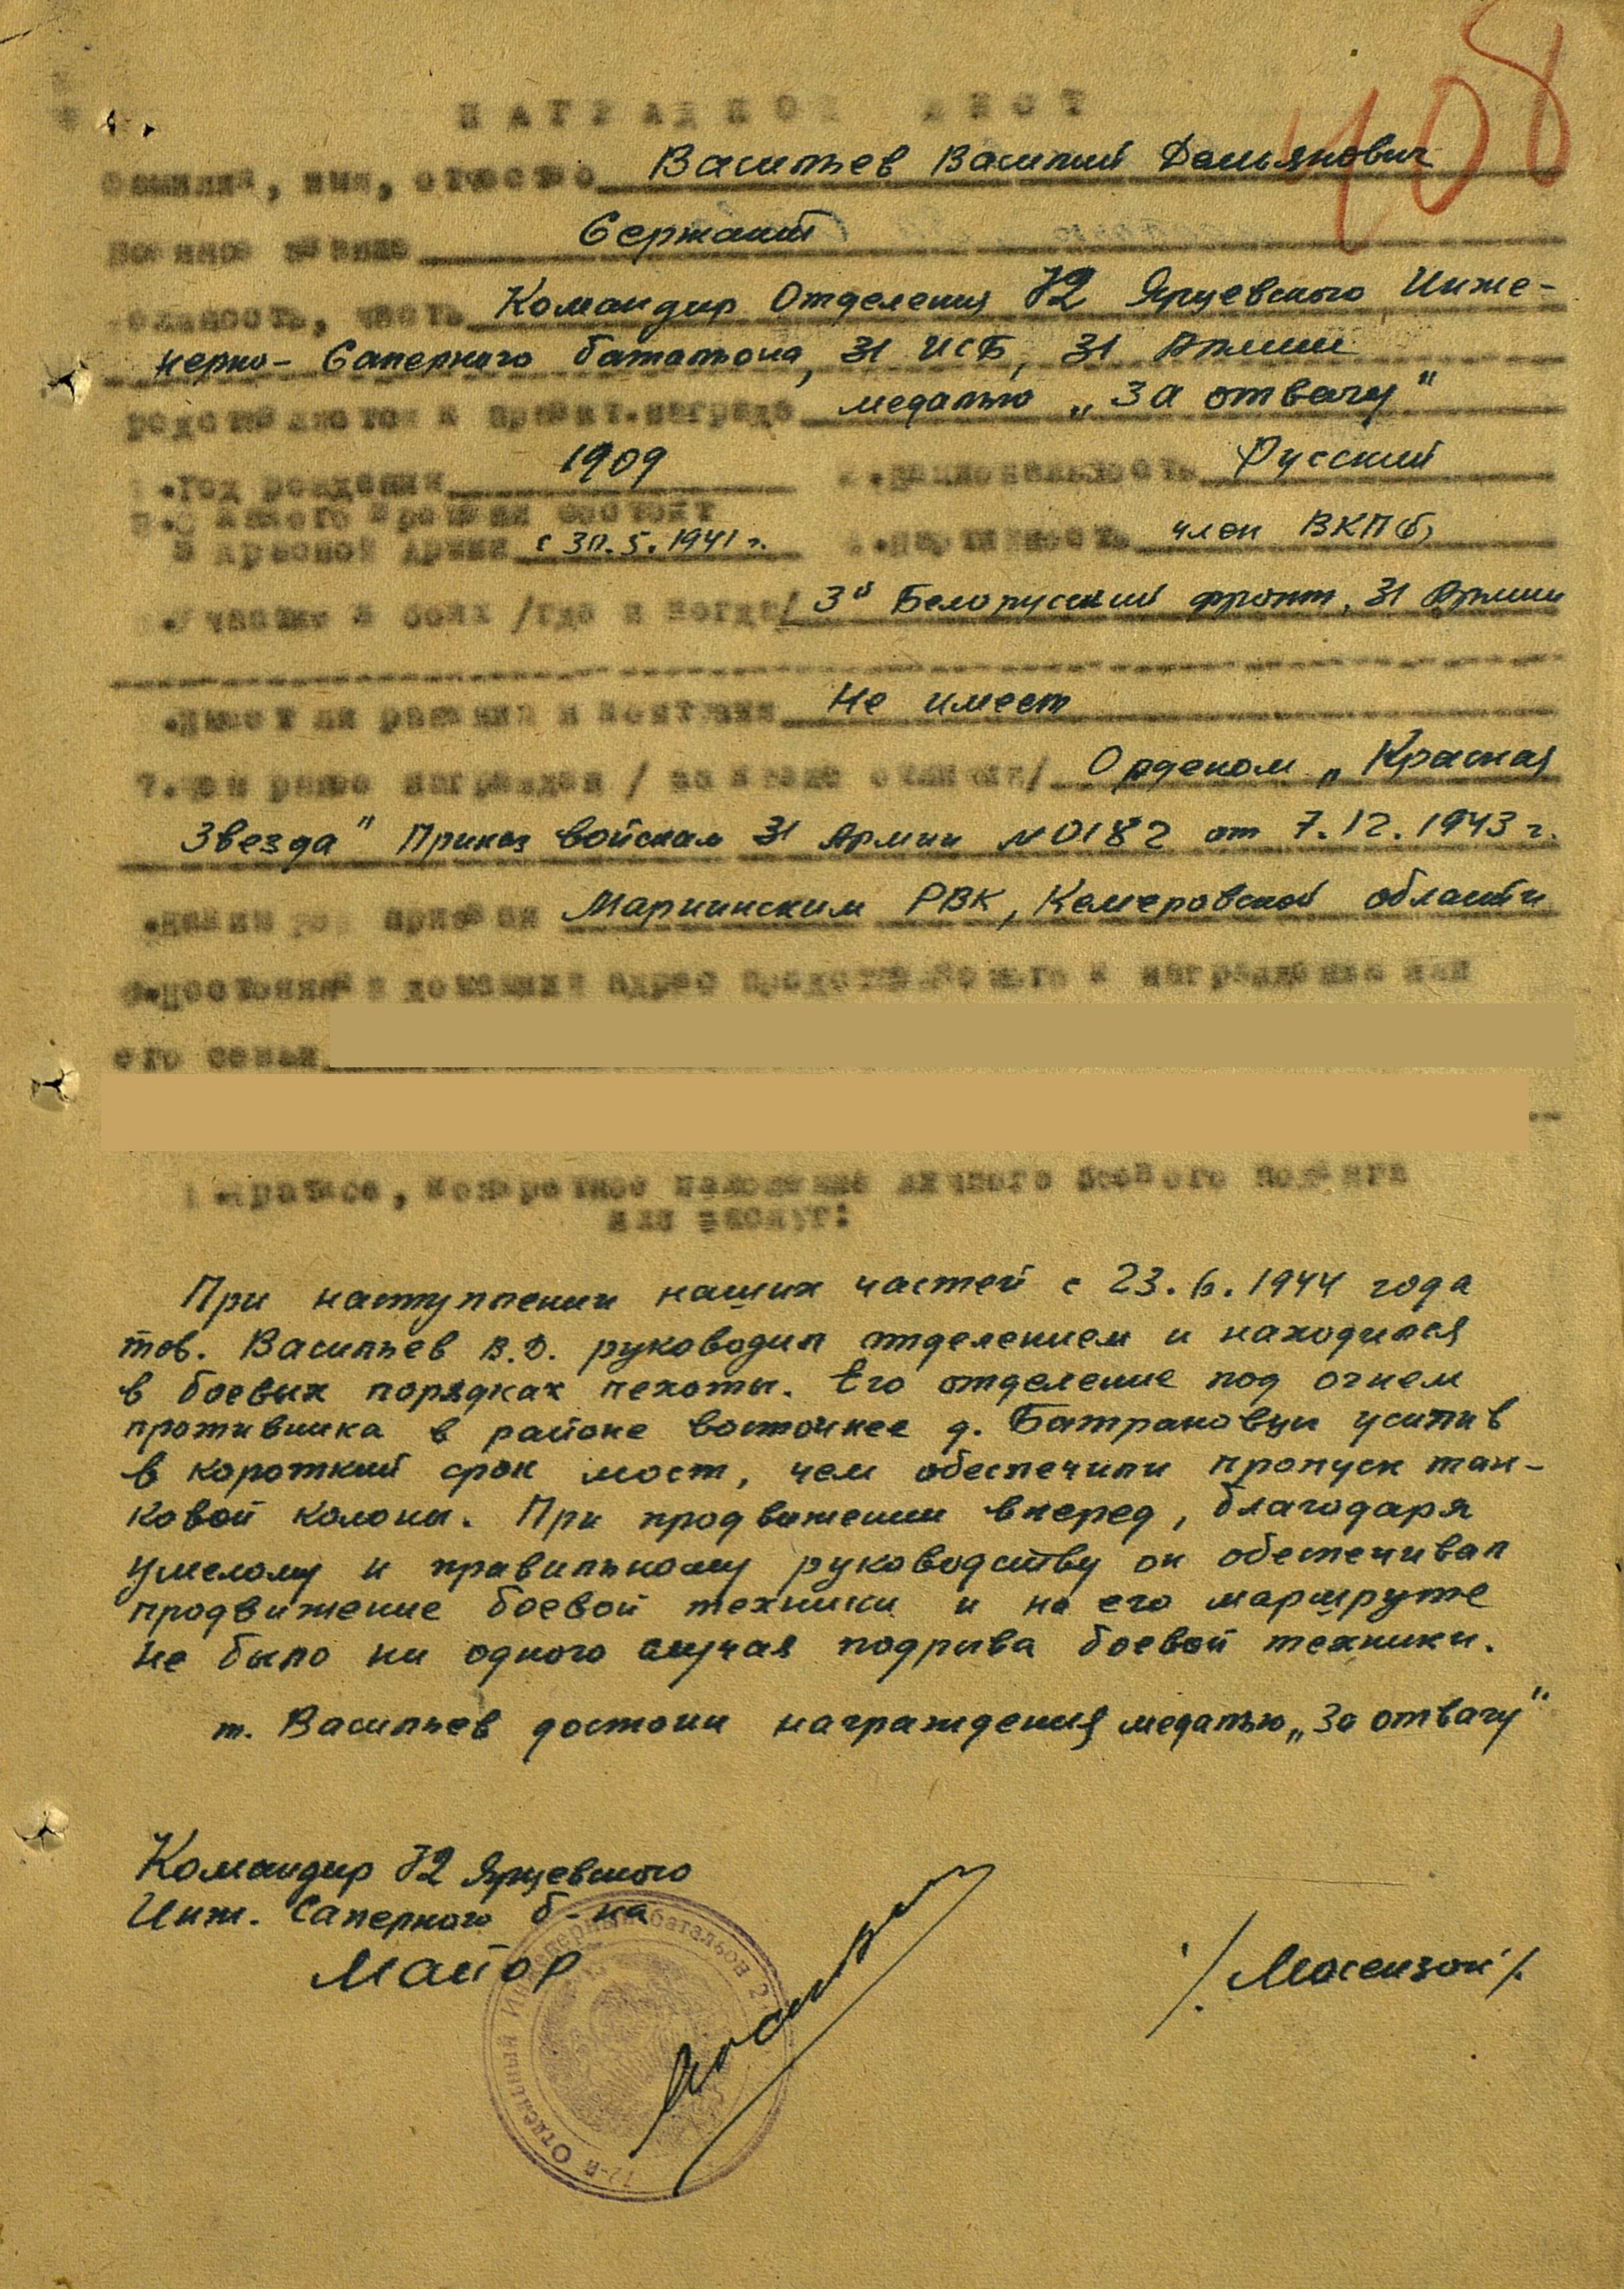 408
НАГРАДНОЙ ЛИСТ
Фамилия, имя, отчество Васильев Василий Демьянович
Военное звание Сержант
Должность, часть Командир Отделения 72 Ярцевского Инже-
нерно-Саперного батальона, 31 ИСБ, 31 Армии
редставляется к правит.награде медалью „За отвагу"
1.Год рождения 1909 2.Национальность Русский
3.С какого времени состоит
в Красной Армии с 30.5.1941 г. 4.Партийность член ВКП(б)
5.Участие в боях /где и когда/ 3й Белорусский фронт, 31 Армии
6.Имеет ли ранения и контузии Не имеет
7.Чем ранее награжден / за какие отличия/ Орденом „Красная
Звезда" Приказ войскам 31 Армии №0182 от 7.12.1943 г.
8.Каким РВК призван Мариинским РВК, Кемеровской области
9.Постоянный домашний адрес представляемого к награждению или
его семьи
10.Краткое, конкретное изложение личного боевого подвига
или заслуг:
При наступлении наших частей с 23.6.1944 года
тов. Васильев В.Д. руководил отделением и находился
в боевых порядках пехоты. Его отделение под огнем
противника в районе восточнее д. Батрановцы усилив
в короткий срок мост, чем обеспечили пропуск тан-
ковой колоны. При продвижении вперед, благодаря
умелому и правильному руководству он обеспечивал
продвижение боевой техники и на его маршруте
не было ни одного случая подрыва боевой техники.
т. Васильев достоин награждения медалью „За отвагу"
Командир 72 Ярцевского
Инж. Саперного б-на
Майор /Мосензон/.
Отдельный Инженерный батальон